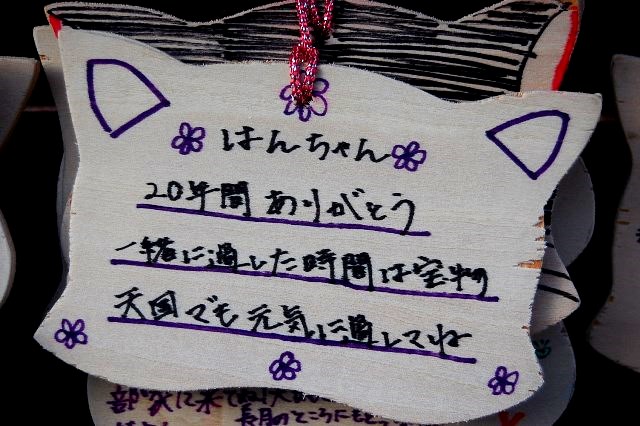 はんちゃん
20年間ありがとう
一緒に過した時間は宝物
天国でも元気に過してね